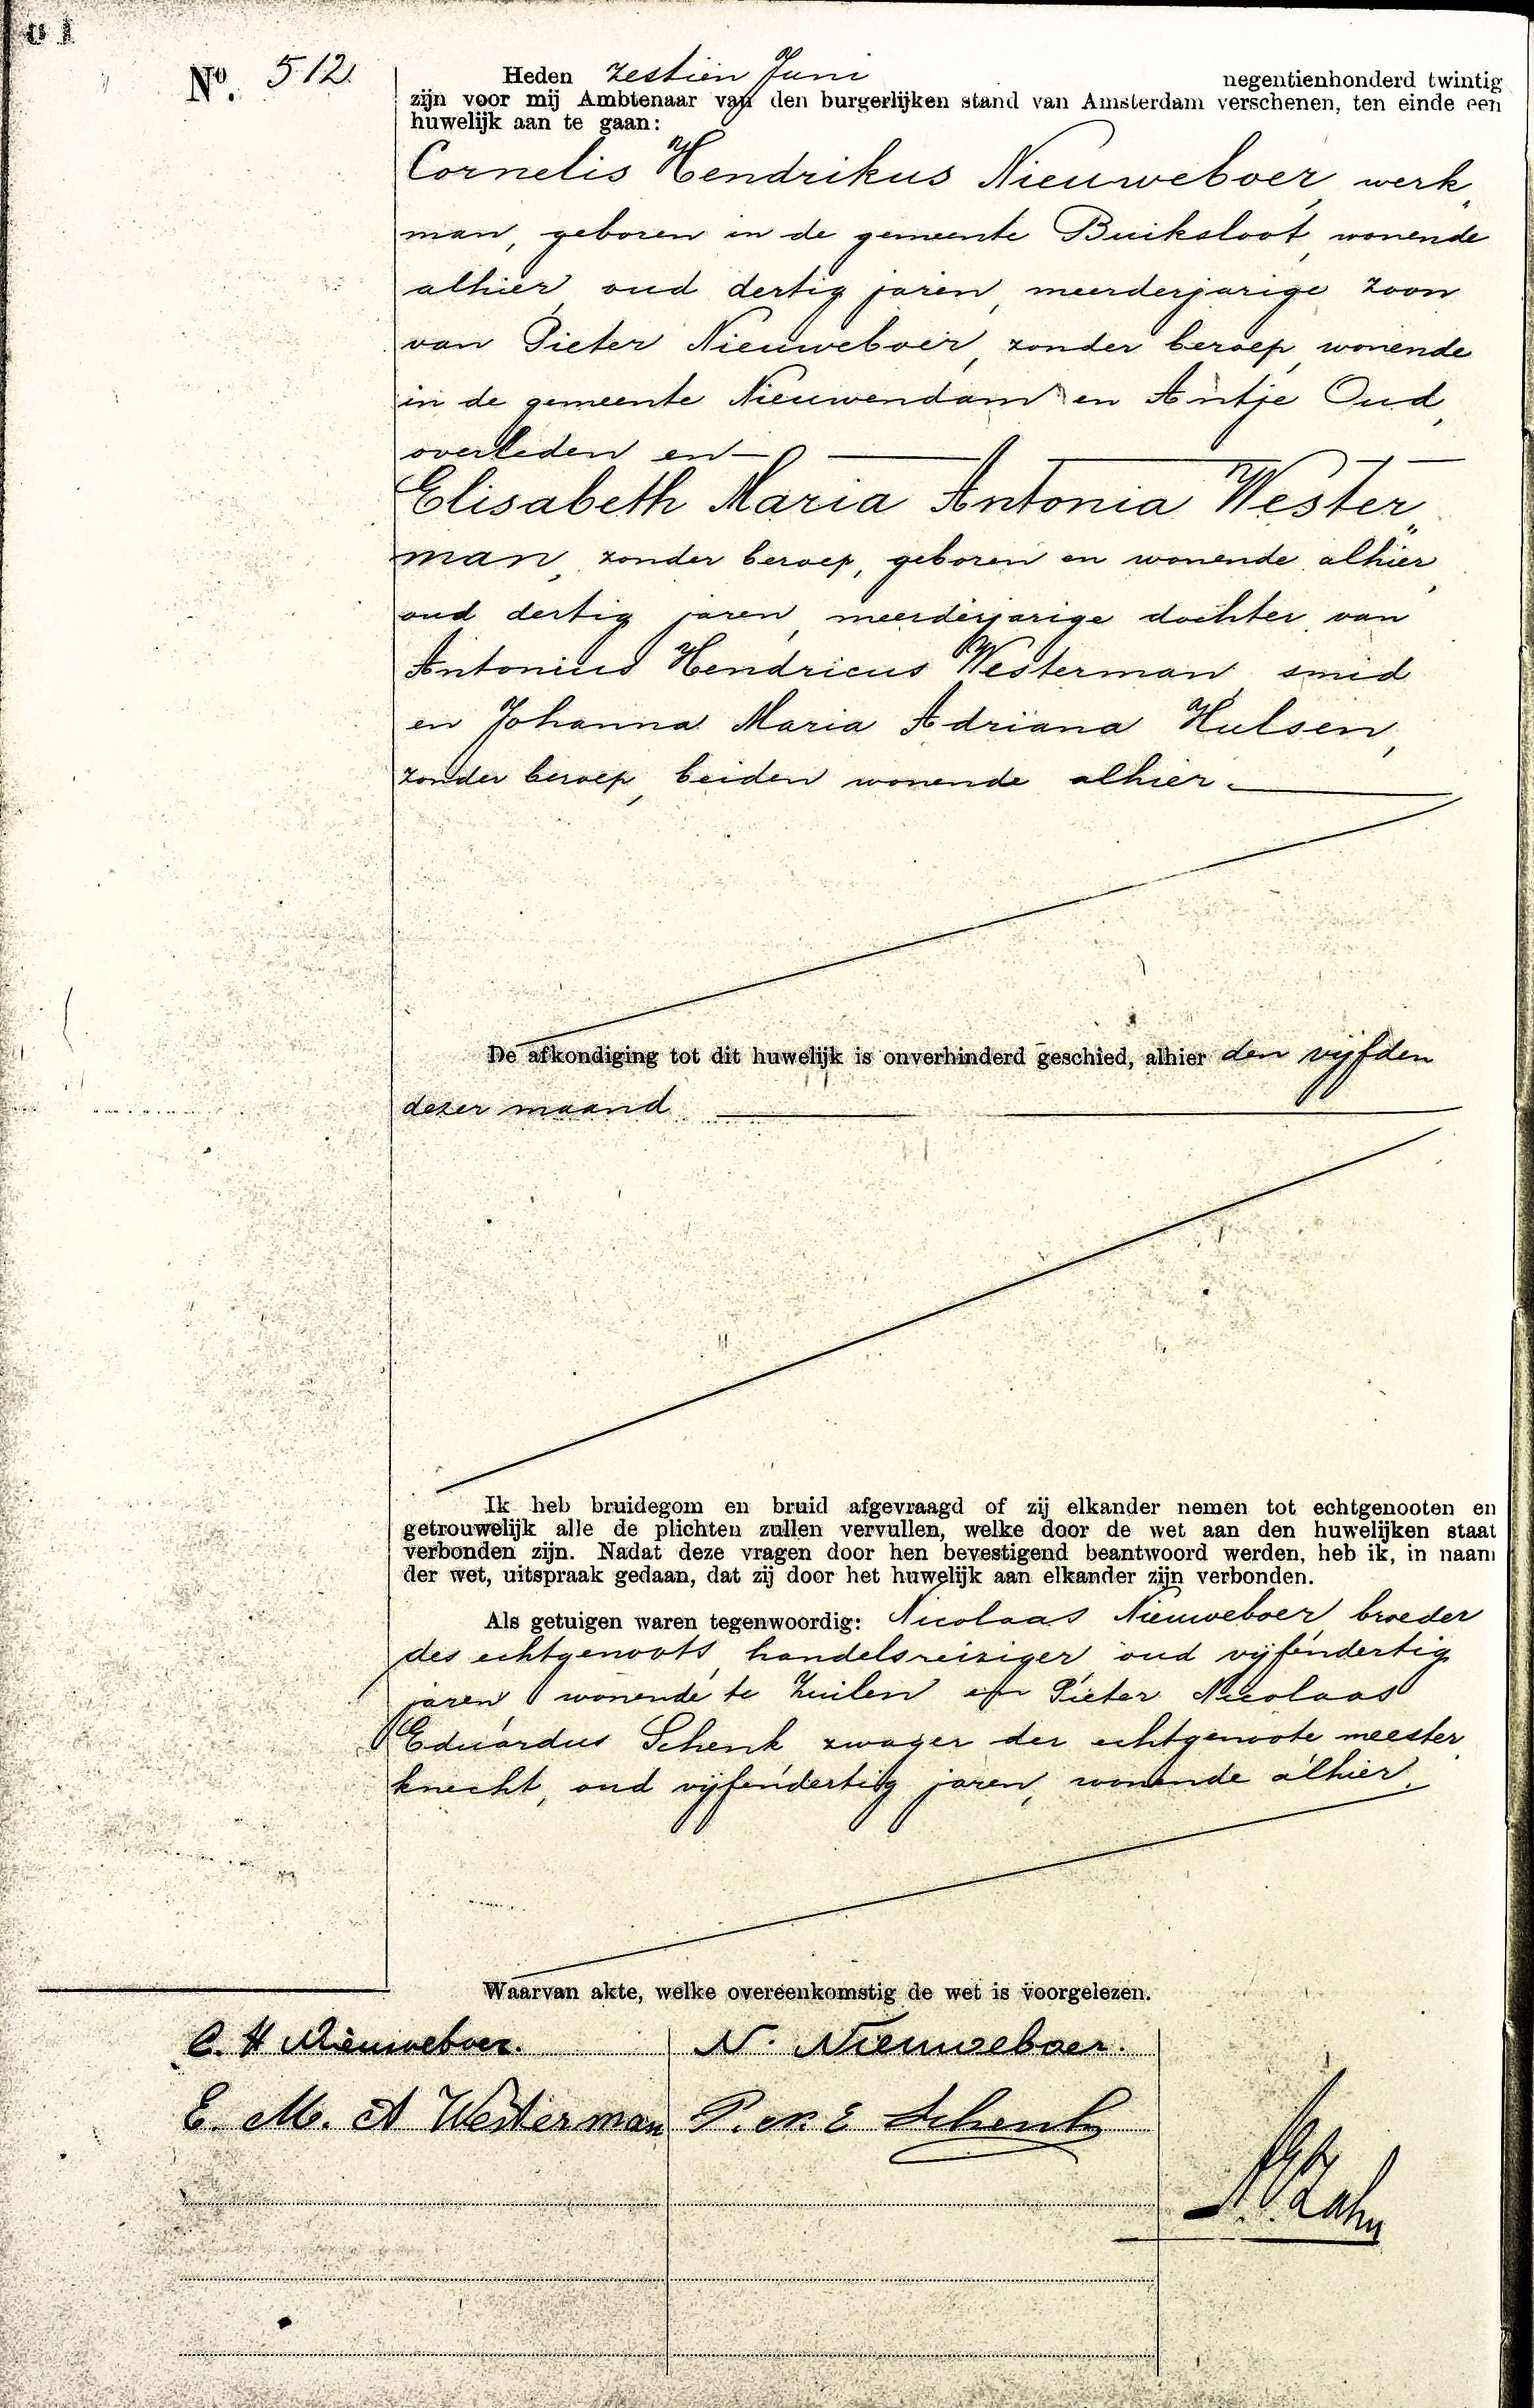 No. 512.
Heden zestien Juni negentienhonderd twintig
zijn voor mij Ambtenaar van den burgerlijken stand van Amsterdam verschenen, ten einde een
huwelijk aan te gaan:
Cornelis Hendrikus Nieuweboer, werk„
man, geboren in de gemeente Buiksloot, wonende
alhier, oud dertig jaren, meerderjarige zoon
van Pieter Nieuweboer, zonder beroep, wonende
in de gemeente Nieuwendam en Antje Oud,
overleden en
Elisabeth Maria Antonia Wester„
man, zonder beroep, geboren en wonende alhier,
oud dertig jaren, meerderjarige dochter van
Antonius Hendricus Westerman, smid
en Johanna Maria Adriana Hulsen,
zonder beroep, beiden wonende alhier.
De afkondiging tot dit huwelijk is onverhinderd geschied, alhier den vijfden
dezer maand
Ik heb bruidegom en bruid afgevraagd of zij elkander nemen tot echtgenooten en
getrouwelijk alle de plichten zullen vervullen, welke door de wet aan den huwelijken staat
verbonden zijn. Nadat deze vragen door hen bevestigend beantwoord werden, heb ik, in naam
der wet, uitspraak gedaan, dat zij door het huwelijk aan elkander zijn verbonden.
Als getuigen waren tegenwoordig: Nicolaas Nieuweboer, broeder
des echtgenoots, handelsreiziger, oud vijfendertig
jaren, wonende te Zuilen en Pieter Nicolaas
Eduardus Schenk, zwager der echtgenoote, meester„
knecht, oud vijfendertig jaren, wonende alhier.
Waarvan akte, welke overeenkomstig de wet is voorgelezen.
C. H Nieuweboer. N. Nieuweboer.
E. M. A Westerman P. N. E Schenk
Zahn